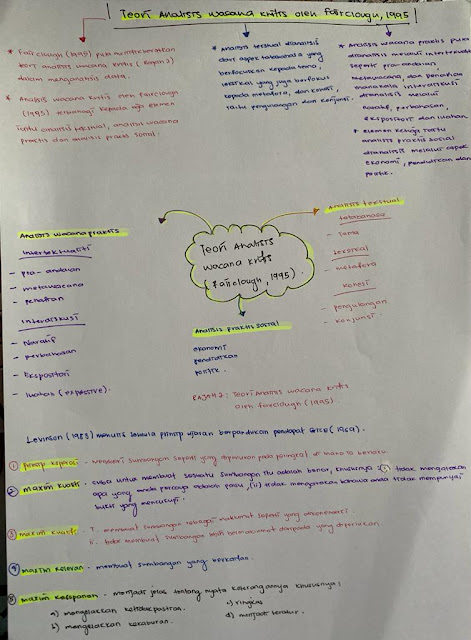 Teori Analisis wacana kritis oleh Fairclough, 1995
* Fairclough (1995) pula
teori analisis wacana kritis (Rajah 2)
dalam menganalisis data.
* Analisis wacana kritis Fairclough
(1995) terbahagi kepada tiga elemen
iaitu analisis tekstual, analisis wacana
praktis dan analisis praktis sosial.
* Analisis tekstual dianalisis
dari aspek tatabahasa yang
berfokuskan kepada tema,
leksikal yang juga berfokus
kepada metafora, dan kohesi,
iaitu pengulangan dan konjungsi.
* Analisis wacana praktis pula
dianalisis melalui intertekstualiti
seperti pra-andaian,
metawacana, dan penafian
manakala interdiskursi
dianalisis melalui
naratif, perbahasan,
ekspositori dan luahan
* elemen ketiga iaitu
analisis praktis sosial
dianalisis melalui aspek
ekonomi, pendidikan dan
politik.
Analisis wacana praktis
Intertekstualiti
- pra-andaian
- metawacana
- penafian
Interdiskursi
- Naratif
- perbahasan
- Ekspositori
- luahan (expressive).
Teori Analisis
wacana kritis
(Fairclough, 1995)
Analisis tekstual
tatabahasa
- Tema
leksikal
- metafora
kohesi
- pengulangan
- konjungsi
Analisis praktis sosial
ekonomi
pendidikan
politik.
RAJAH 2: Teori Analisis wacana kritis
oleh Fairclough (1995)
Levinson (1983) menulis semula prinsip ujaran berpandukan pendapat Grice (1969).
① prinsip koperasi - memberi sumbangan seperti yang diperlukan pada peringkat di mana ia berlaku
② maxim kualiti - cuba untuk membuat sesuatu sumbangan itu adalah benar, khususnya: (i) tidak mengatakan
apa yang anda percaya adalah palsu, (ii) tidak mengatakan bahawa anda tidak mempunyai
bukti yang mencukupi.
③ maxim kuantiti - i. membuat sumbangan sebagai maklumat seperti yang
ii. tidak membuat sumbangan lebih bermaklumat daripada yang diperlukan.
④ maxim Relevan - membuat sumbangan yang berkaitan.
⑤ maxim kesopanan - menjadi jelas tentang nyata keterangannya khususnya;
a) mengelakkan ketidakpastian. c) ringkas
b) mengelakkan kekaburan. d) menjadi teratur.